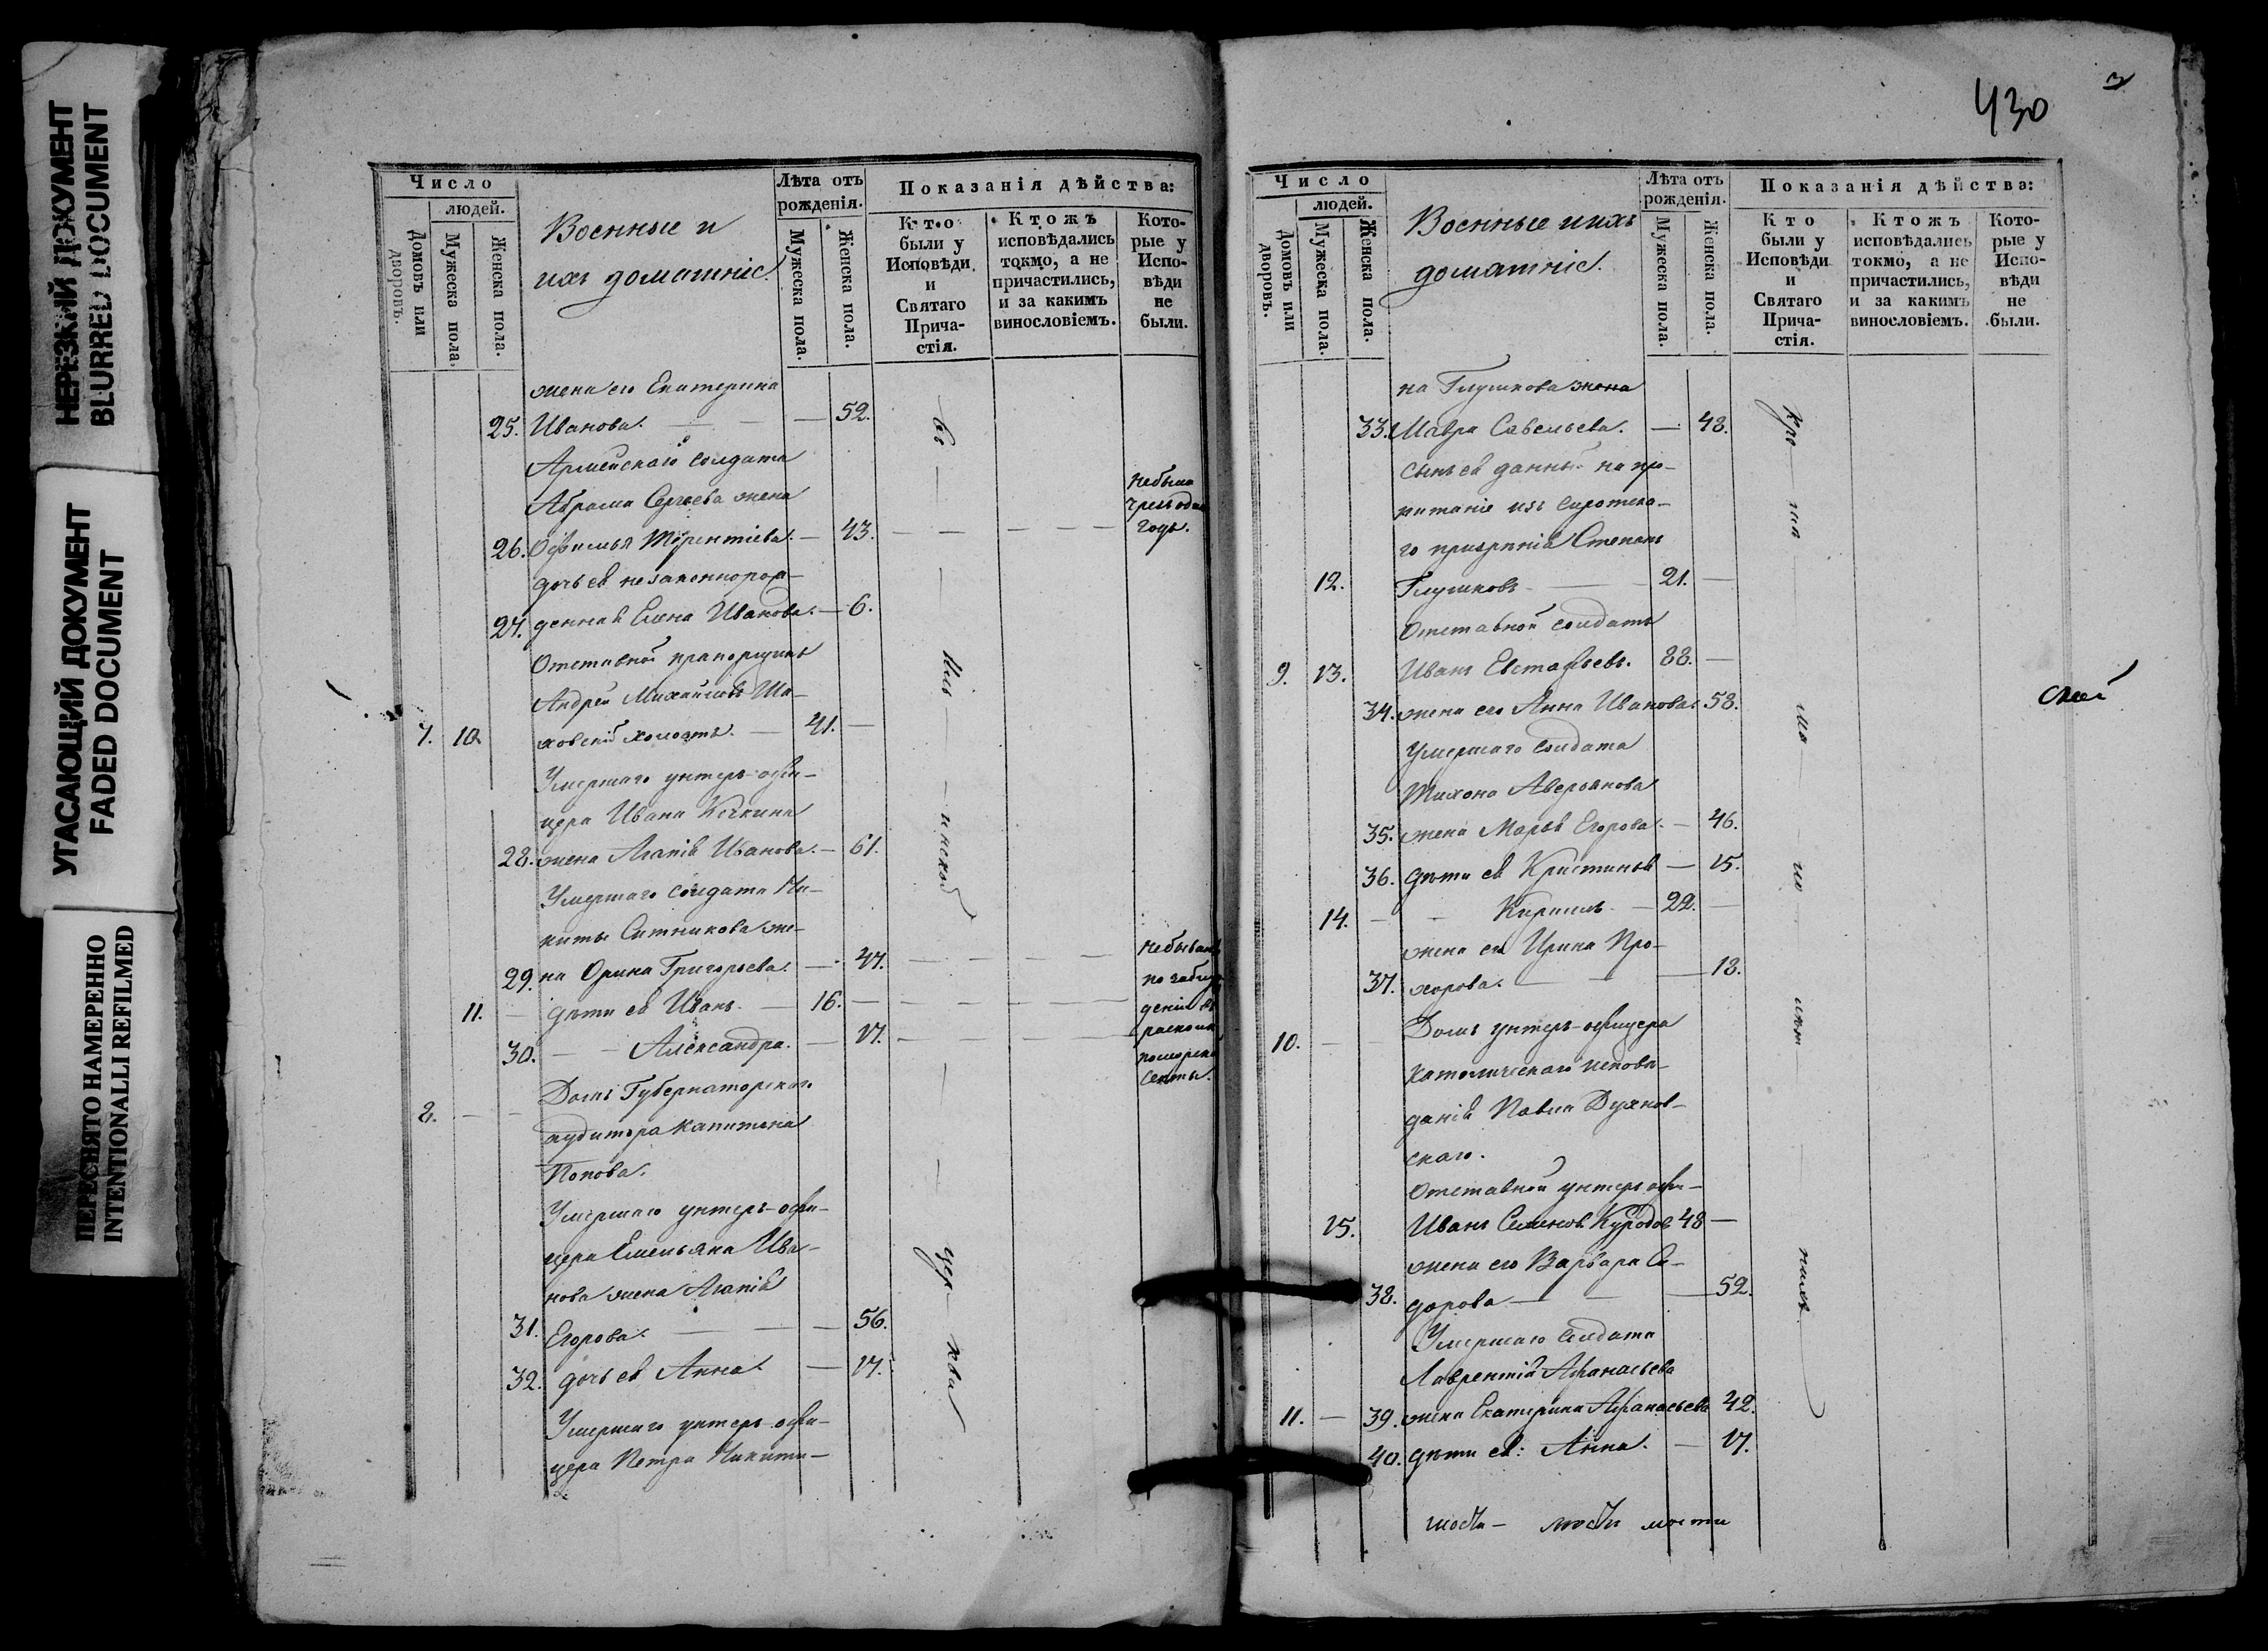 НЕРЕЗКИЙ ДОКУМЕНТ
BLURRED DOCUMENT
УГАСАЮЩИЙ ДОКУМЕНТ
FADED DOCUMENT
ПЕРЕСНЯТО НАМЕРЕННО
INTENTIONALLI REFILMED
Число
людей.
Домовъ или дворовъ.
Мужеска пола.
Женска пола.
Военные и
ихъ домашніе.
Лѣта отъ рожденія.
Мужеска пола.
Женска пола.
Показанія дѣйства:
Кто были у Исповѣди и Святаго Прича-стія.
Ктожъ исповѣдались токмо, а не причастились, и за какимъ винословіемъ.
Кото-рые у Испо-вѣди не были.
жена его Екатерина
25. Иванова. — 52.
Армейскаго солдата
Абрама Сергѣева жена
26. Офимья Терентіева. — 43. — — — —
Небыла
чрезъ одинъ
годъ.
дочь ея незаконнорож-
27. денная Елена Иванова. — 6.
Отставной прапорщикъ
Андрей Михайловъ Ша-
7. 10. ховскій холостъ. — 41. —
Умершаго унтеръ-офи-
цера Ивана
28. жена Агапія Иванова. — 61.
Умершаго солдата Ни-
киты Ситникова же-
29. на Орина Григорьева. — 47. — — — —
11. — дѣти ея Иванъ. — 16. — — — —
30. — — Александра. — 17. — — —
Небываютъ
по заблуж-
денію въ
расколъ
поморской
секты.
Домъ Губернаторскаго
8. — — аудитора капитана
Попова.
Умершаго унтеръ-офи-
цера Емельяна Ива-
нова жена Агапія
31. Егорова. — 56.
32. дочь ея Анна. — 17.
Умершаго унтеръ-офи-
цера Петра Никити-
въ
цер
кова
430
3
Число
людей.
Домовъ или дворовъ.
Мужеска пола.
Женска пола.
Военные и ихъ
домашніе.
Лѣта отъ рожденія.
Мужеска пола.
Женска пола.
Показанія дѣйства:
Кто были у Исповѣди и Святаго Прича-стія.
Ктожъ исповѣдались токмо, а не причастились, и за какимъ винословіемъ.
Кото-рые у Испо-вѣди не были.
на Глушкова жена
33. Мавра Савельева. — 48.
сынъ ея данный на про-
питаніе изъ сиротска-
го призрѣнія Степанъ
12. Глушковъ — 21. —
Отставной солдатъ
9. 13. Иванъ Евстафьевъ. 88. —
34. жена его Анна Иванова. 58.
Умершаго солдата
Тихона Аверьянова
35. жена Марья Егорова. — 46.
36. дѣти ея Кристинья — 15.
14. — — Кирилъ — 22. —
жена его Ирина Про-
37. хорова. — 18.
10. — Домъ унтеръ-офицера
католическаго исповѣ-
данія Павла Духнов-
скаго.
Отставной унтеръ офи-
15. Иванъ Семеновъ 48 —
жена его Варвара Си-
38. дорова — 52.
Умершаго солдата
Лаврентія Афанасьева
11. — 39. жена Екатерина Афанасьева 42.
40. дѣти ея: Анна. — 17.